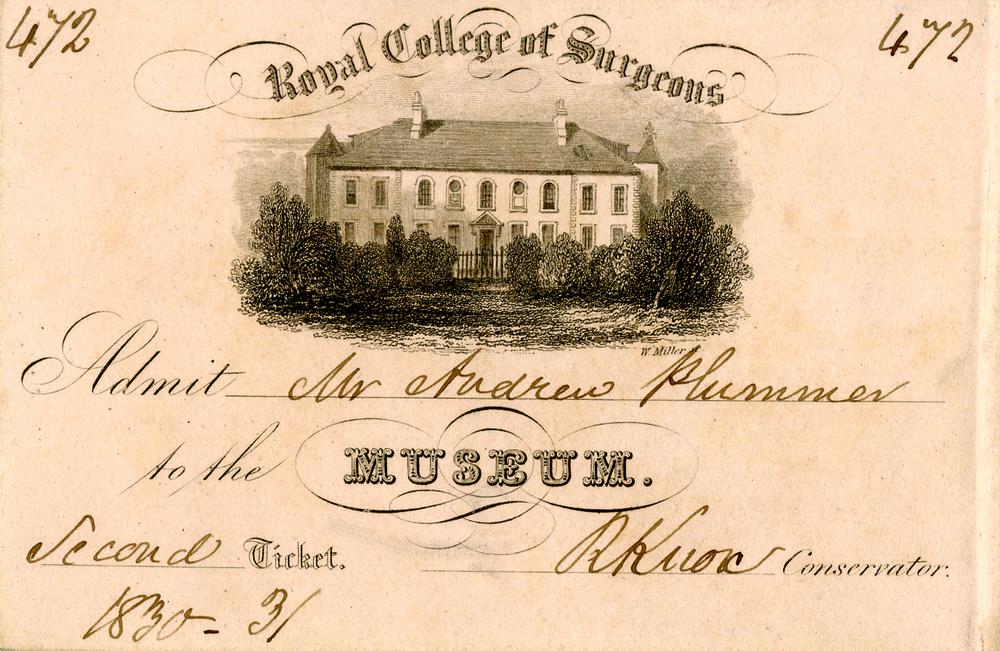 472 472
Royal College of Surgeons
W. Miller
Admit Mr Andrew Plummer
to the MUSEUM.
Second Ticket. R Knox Conservator.
1830-31